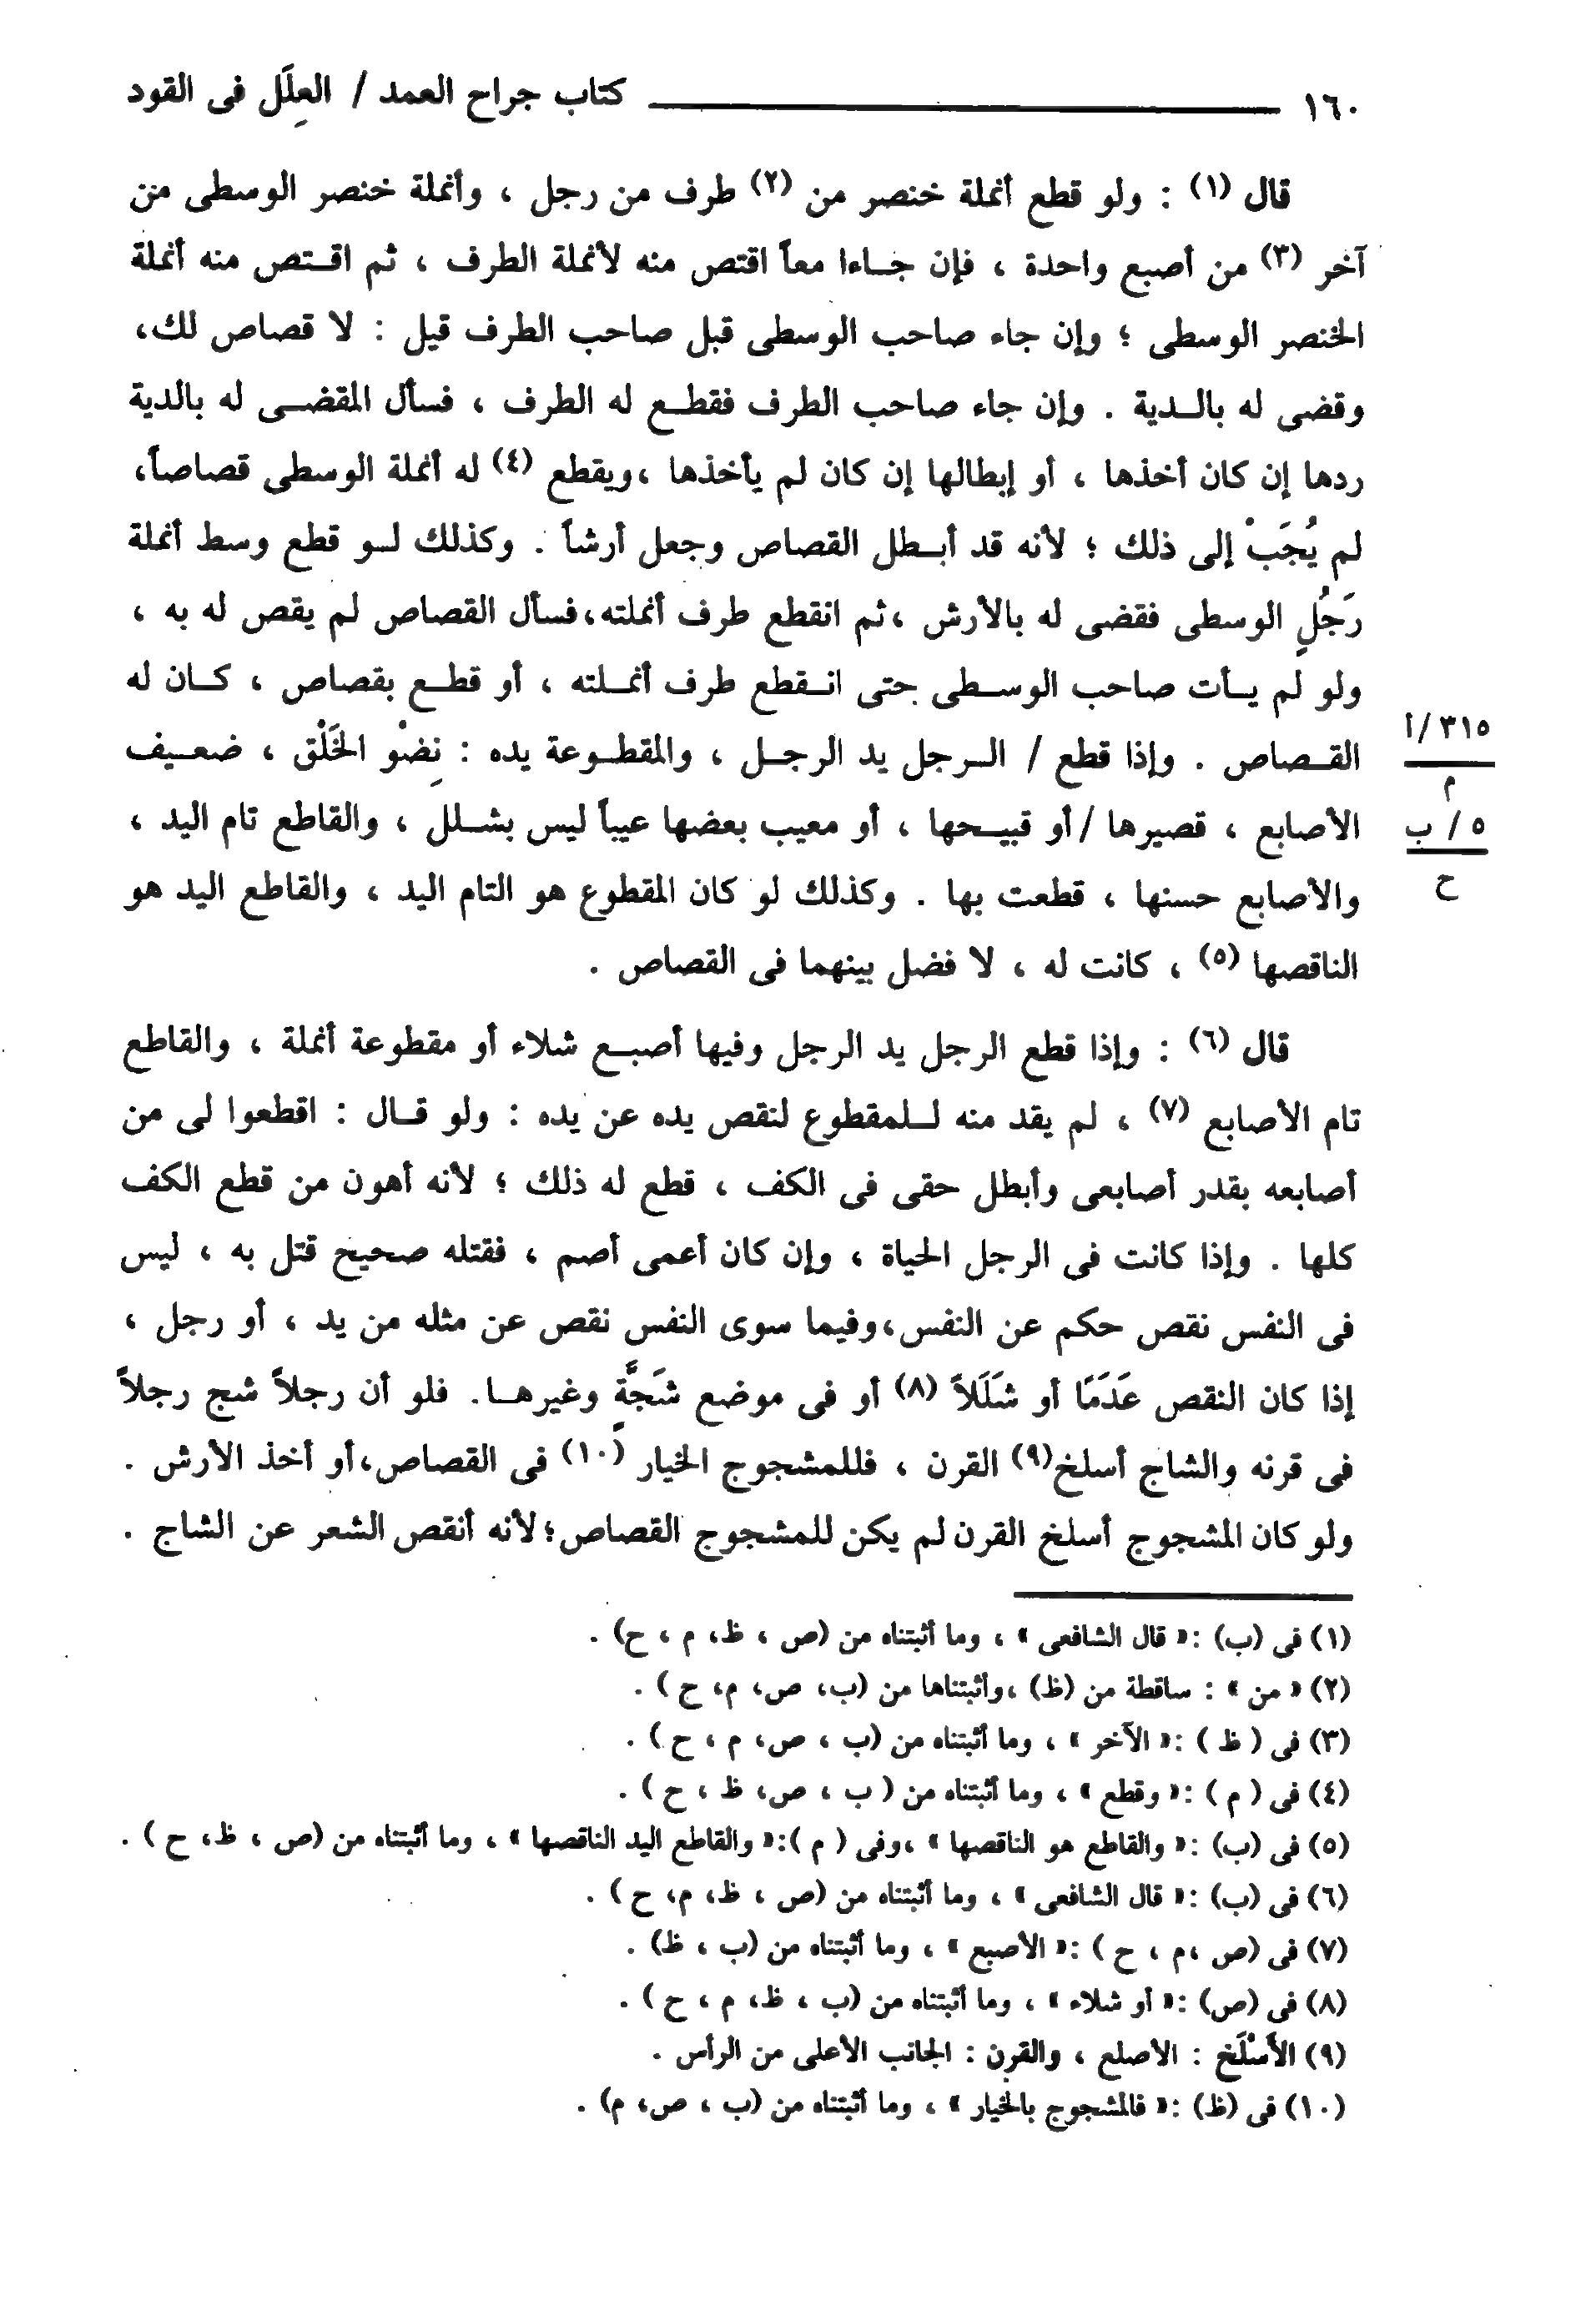 ١٦٠ كتاب جراح العمد / العِلَل فى القود
قال (١) : ولو قطع أنملة خنصر من (٢) طرف من رجل ، وأنملة خنصر الوسطى من
آخر (٣) من أصبع واحدة ، فإن جاءا معاً اقتص منه لأنملة الطرف ، ثم اقتص منه أنملة
الخنصر الوسطى ؛ وإن جاء صاحب الوسطى قبل صاحب الطرف قيل : لا قصاص لك،
وقضى له بالدية . وإن جاء صاحب الطرف فقطع له الطرف ، فسأل المقضى له بالدية
ردها إن كان أخذها ، أو إبطالها إن كان لم يأخذها ،ويقطع (٤) له أنملة الوسطى قصاصاً،
لم يُجَبْ إلى ذلك ؛ لأنه قد أبطل القصاص وجعل أرشاً . وكذلك لو قطع وسط أنملة
رَجُلٍ الوسطى فقضى له بالأرش ،ثم انقطع طرف أنملته،فسأل القصاص لم يقص له به ،
ولو لم يأت صاحب الوسطى حتى انقطع طرف أنملته ، أو قطع بقصاص ، كان له
القصاص . وإذا قطع / الرجل يد الرجل ، والمقطوعة يده : نِضْو الخَلْق ، ضعيف
٣١٥/أ
م
الأصابع ، قصيرها /أو قبيحها ، أو معيب بعضها عيباً ليس بشلل ، والقاطع تام اليد ،
٥ / ب
ح
والأصابع حسنها ، قطعت بها . وكذلك لو كان المقطوع هو التام اليد ، والقاطع اليد هو
الناقصها (٥) ، كانت له ، لا فضل بينهما فى القصاص .
قال (٦) : وإذا قطع الرجل يد الرجل وفيها أصبع شلاء أو مقطوعة أنملة ، والقاطع
تام الأصابع (٧) ، لم يقد منه للمقطوع لنقص يده عن يده : ولو قال : اقطعوا لى من
أصابعه بقدر أصابعى وأبطل حقى فى الكف ، قطع له ذلك ؛ لأنه أهون من قطع الكف
كلها . وإذا كانت فى الرجل الحياة ، وإن كان أعمى أصم ، فقتله صحيح قتل به ، ليس
فى النفس نقص حكم عن النفس،وفيما سوى النفس نقص عن مثله من يد ، أو رجل ،
إذا كان النقص عَدَمًا أو شَلَلاً (٨) أو فى موضع شَجَّةٍ وغيرها. فلو أن رجلاً شج رجلاً
فى قرنه والشاج أسلخ(٩) القرن ، فللمشجوج الخيار (١٠) فى القصاص،أو أخذ الأرش .
ولو كان المشجوج أسلخ القرن لم يكن للمشجوج القصاص؛لأنه أنقص الشعر عن الشاج .
(١) فى (ب) :« قال الشافعى » ، وما أثبتناه من (ص ، ظ، م ، ح) .
(٢) « من » : ساقطة من (ظ) ،وأثبتناها من (ب، ص، م، ح ) .
(٣) فى ( ظ ) :« الآخر » ، وما أثبتناه من (ب ، ص، م ، ح ) .
(٤) فى ( م ) :« وقطع » ، وما أثبتناه من ( ب ، ص، ظ ، ح ) .
(٥) فى (ب) :« والقاطع هو الناقصها » ،وفى ( م ):« والقاطع اليد الناقصها » ، وما أثبتناه من (ص ، ظ، ح ) .
(٦) فى (ب) :« قال الشافعى » ، وما أثبتناه من (ص ، ظ، م، ح ) .
(٧) فى (ص ،م ، ح ) :« الأصبع » ، وما أثبتناه من (ب ، ظ) .
(٨) فى (ص) :« أو شلاء » ، وما أثبتناه من (ب ، ظ، م ، ح ) .
(٩) الأَسْلَخ : الأصلع ، والقرن : الجانب الأعلى من الرأس .
(١٠) فى (ظ) :« فالمشجوج بالخيار » ، وما أثبتناه من (ب ، ص، م) .